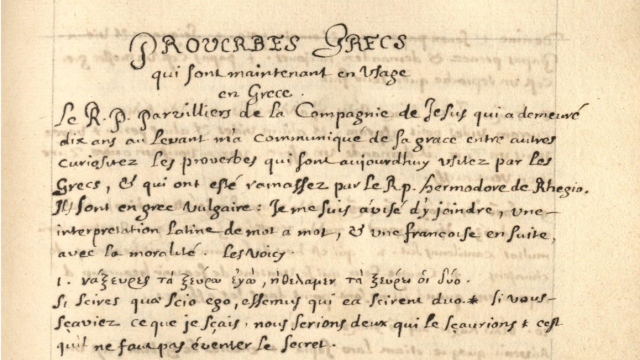 PROUERBES GRECS
qui sont maintenant en Vsage
en Grece.
Le R. P. Parvilliers de la Compagnie de Jesus qui a demeuré
dix ans au Levant m'a communiqué de sa grace entre autres
curiositez les proverbes qui sont aujourdhuy vsitez par les
Grecs, & qui ont esté ramassez par le R. p. hermodore de Rhegio.
Ils sont en grec vulgaire : Je me suis avisé d'y joindre, une
interpretation Latine de mot a mot, & une francoise en suite,
avec la moralité. les voicy.
1. νάξευρες τὰ ξεύρω ἐγώ, ἠθέλαμεν τὰ ξεύρω ὁι δύο.
Si scires quæ scio ego, essemus qui ea scirent duo. * si vous
sçaviez ce que je sçais, nous serions deux qui le sçaurions * c'est
qu'il ne faut pas éventer le secret.